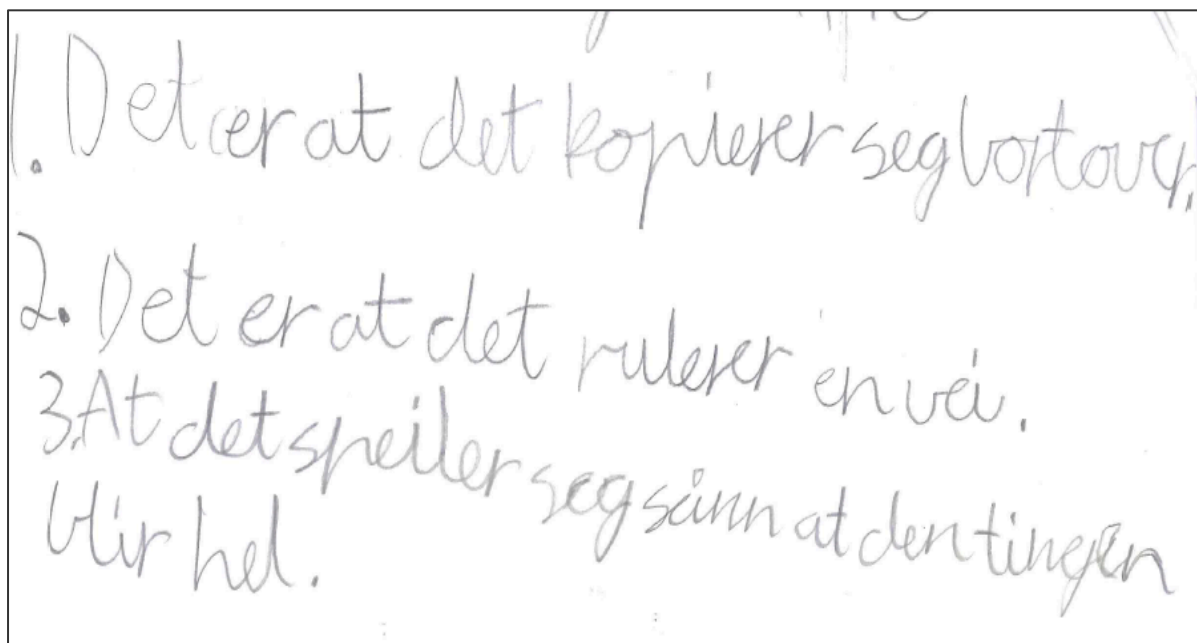 1. Det er at det kopierer seg bortover.
2. Det er at det rulerer en vei.
3. At det speiler seg sånn at den tingen
blir hel.